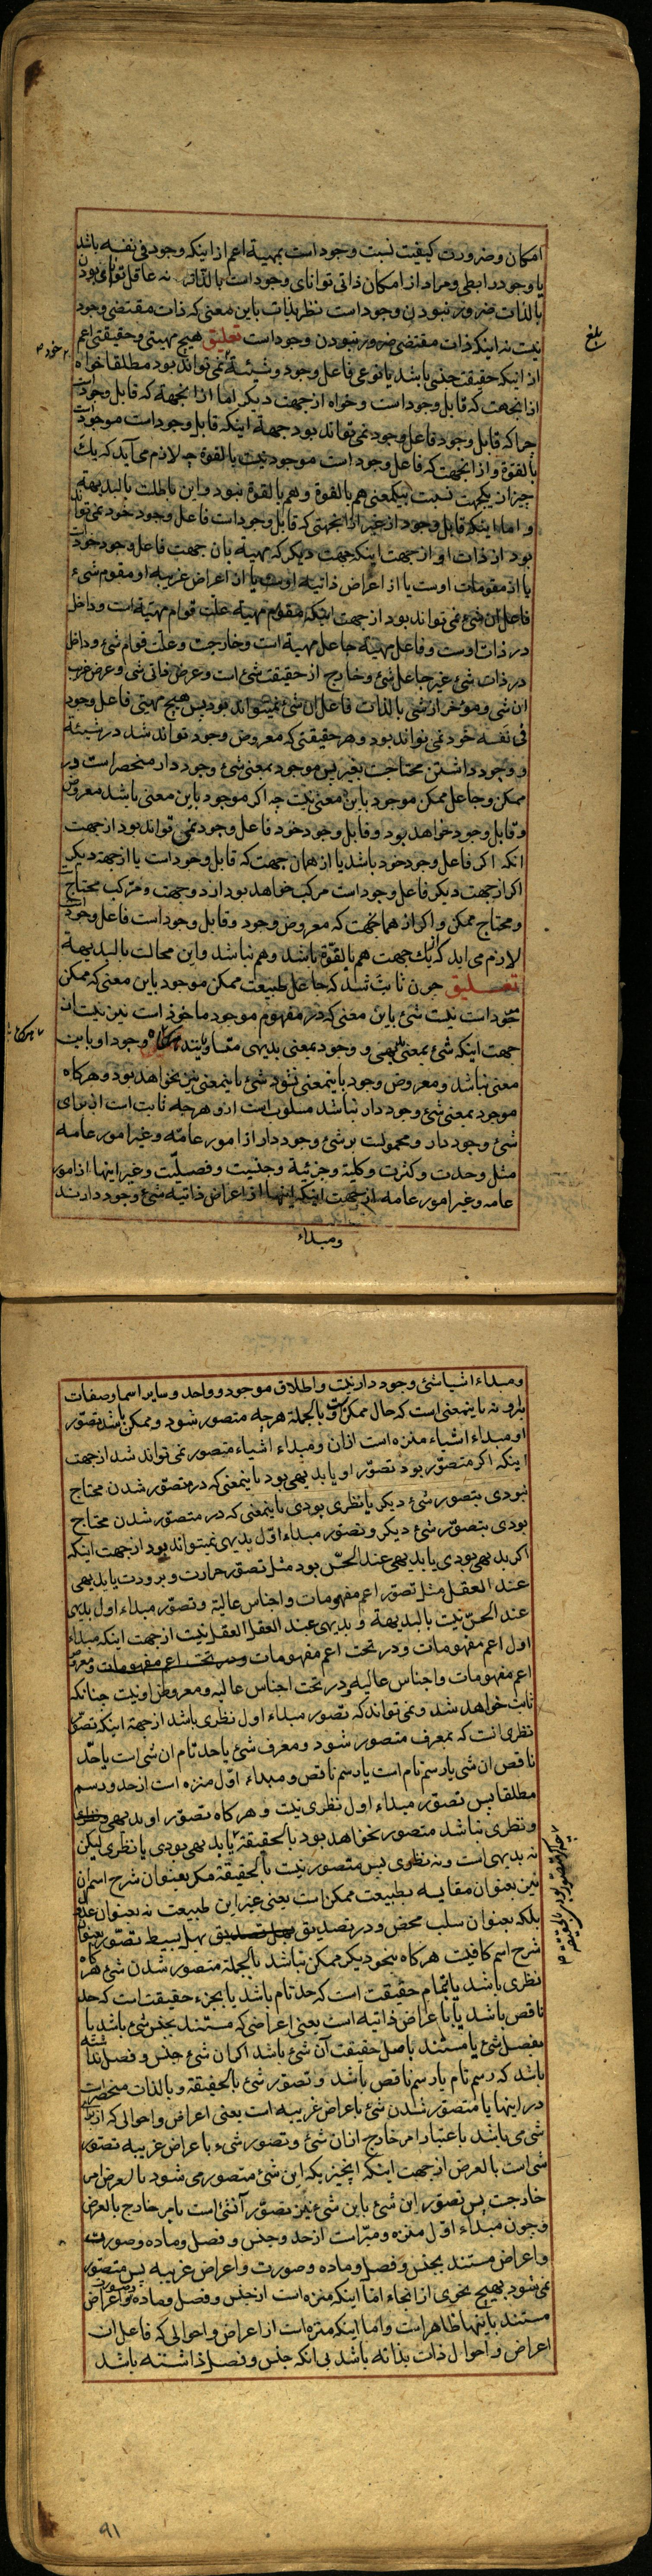 امکان وضرورت کیفیت نسبت وجود است بمهیة اعم از اینکه وجود فی نفسه باشد
یا وجود رابطی ومراد از امکان ذاتی توانای وجود است بالذات نه عاقل توانای بودن
بالذات ضرور نبودن وجود است نظر بذات باین معنی که ذات مقتضی وجود
نیست نه اینکه ذات مقتضی ضرور نبودن وجود است تعلیق هیچ مهیتی وحقیقتی اعم
از اینکه حقیقت جنسی باشد یا نوعی فاعل وجود وشیئیة نمی تواند بود مطلقا خواه
از انجهت که قابل وجود است وخواه از جهت دیکر اما از انجهة که قابل وجود است
چرا که قابل وجود فاعل وجود نمی تواند بود جهة اینکه قابل وجود است موجود
بالقوة واز انجهت که فاعل وجود است موجود نیست بالقوة چه لازم می آید که یک
چیز از یکجهت نسبت بیکمعنی هم بالقوة وهم بالقوة نبود واین باطلست بالبدیهه
و اما اینکه قابل وجود از غیر از انجهتی که قابل وجود است فاعل وجود خود نمی تواند
بود از ذات او از جهت اینکه جهت دیکر که مهیة بان جهت فاعل وجود خود است
یا از مقومات اوست یا از اعراض ذاتیه اوست یا از اعراض غریبه او مقوم شیء
فاعل ان شیء نمی تواند بود از جهت اینکه مقوم مهیة علت قوام مهیة است وداخل
در ذات اوست وفاعل مهیة جاعل مهیة است وخارجست وعلت قوام شیء وداخل
در ذات شیء غیر جاعل شیء وخارج از حقیقت شیء است وعرض ذاتی شیء وعرض غریب
ان شیء ومؤخر از شیء بالذات فاعل ان شیء نمیتواند بود پس هیچ مهیتی فاعل وجود
فی نفسه خود نمی تواند بود وهر حقیقتی که معروض وجود تواند شد در شیئیة
و وجود داشتن محتاجست بغیر پس موجود بمعنی شیء وجود دار منحصر است در
ممکن وجاعل ممکن موجود باین معنی نیست چه اکر موجود باین معنی باشد معروض
وقابل وجود خواهد بود وقابل وجود خود فاعل وجود نمی تواند بود از جهت
انکه اکر فاعل وجود خود باشد یا از همان جهت که قابل وجود است یا از جهة دیکر
اکر از جهت دیکر فاعل وجود است مرکب خواهد بود از دو جهت ومرکب محتاج است
ومحتاج ممکن واکر از همانجهت که معروض وجود وقابل وجود است فاعل وجود است
لازم می اید که از یک جهت هم بالقوة باشد وهم نباشد واین محالست بالبدیهة
تعلیق چون ثابت شد که جاعل طبیعت ممکن موجود باین معنی که ممکن
موجود است نیست شیء باین معنی که در مفهوم موجود ماخوذ است نیز نیست از
جهت اینکه شیء بمعنی بدیهی و وجود بمعنی بدیهی متساویند وجود او باین
معنی نباشد ومعروض وجود باینمعنی نشود شیء باینمعنی نیز نخواهد بود وهرکاه
موجود بمعنی شیء وجود دار نباشد مسلوبست از و هرچه ثابت است از برای
شیء وجود دار ومحمولست بر شیء وجود دار از امور عامه وغیر امور عامه
مثل وحدت وکثرت وکلیة وجزئیة وجنسیت وفصلیت وغیر اینها از امور
عامه وغیر امور عامه از جهت اینکه اینها از اعراض ذاتیه شیء وجود دارند
ومبداء
بلغ
ومبداء اشیا شیء وجود دار نیست واطلاق موجود وواحد وسایر اسما وصفات
برو نه باینمعنی است که حال ممکن است وبالجملة هرچه متصور شود وممکن باشد تصور
او مبداء اشیاء منزه است ازان ومبداء اشیاء متصور نمی تواند شد از جهت
اینکه اکر متصور بود تصور او یا بدیهی بود باینمعنی که در متصور شدن محتاج
نبودی بتصور شیء دیکر یا نظری بودی باینمعنی که در متصور شدن محتاج
بودی بتصور شیء دیکر وتصور مبداء اول بدیهی نمیتواند بود از جهت اینکه
اکر بدیهی بودی یا بدیهی عند الحس بود مثل تصور حرارت وبرودت یا بدیهی
عند العقل مثل تصور اعم مفهومات واجناس عالیة وتصور مبداء اول بدیهی
عند الحس نیست بالبدیهة وبدیهی عند العقل نیست از جهت اینکه مبداء
اول اعم مفهومات ودر تحت اعم مفهومات ودر تحت اعم مفهومات ومعروض
اعم مفهومات واجناس عالیه ودر تحت اجناس عالیه ومعروض او نیست چنانکه
ثابت خواهد شد ونمی تواند که تصور مبداء اول نظری باشد از جهة اینکه تصور
نظری انست که بمعرف متصور شود ومعرف شیء یا حد تام ان شیء است یا حد
ناقص ان شیء یا رسم تام است یا رسم ناقص ومبداء اول منزه است از حد ورسم
مطلقا پس تصور مبداء اول نظری نیست وهرکاه تصور او بدیهی
ونظری نباشد متصور نخواهد بود بالحقیقة یا بدیهی بودی یا نظری لیکن
نه بدیهی است ونه نظری پس متصور نیست بالحقیقة مکر بعنوان شرح اسم ان
نیز بعنوان مقایسه بطبیعت ممکن است یعنی غیر این طبیعت نه بعنوان عدول
بلکه بعنوان سلب محض ودر تصدیق بهل بسیط تصور بعنوان
شرح اسم کافیست هرکاه بنحو دیکر ممکن نباشد بالجملة متصور شدن شیء هرکاه
نظری باشد یا بتمام حقیقت است که حد تام باشد یا بجزء حقیقت است که حد
ناقص باشد یا باعراض ذاتیه است یعنی اعراضی که مستند بجنس شیء باشد یا
بفصل شیء یا مستند باصل حقیقت آن شیء باشد اکر ان شیء جنس وفصل نداشته
باشد که رسم تام یا رسم ناقص باشد وتصور شیء بالحقیقة وبالذات منحصر است
در اینها یا متصور شدن شیء باعراض غریبه است یعنی اعراض واحوالی که از برای
شیء می باشد باعتبار امر خارج ازان شیء وتصور شیء باعراض غریبه تصور
شیء است بالعرض از جهت اینکه انچیز یکه این شیء متصور می شود بالعرض امر
خارجست پس تصور این شیء باین شیء نیز تصور آنشیء است بامر خارج بالعرض
وچون مبداء اول منزه ومبراست از حد وجنس وفصل وماده وصورت
واعراض مستند بجنس وفصل وماده وصورت واعراض غریبه پس متصور
نمی شود بهیچ نحوی از انحاء اما اینکه منزه است از جنس وفصل وماده وصورت واعراض
مستند باینها ظاهر است واما اینکه منزه است از اعراض واحوالی که فاعل ان
اعراض واحوال ذات بذاته باشد بی انکه جنس وفصل داشته باشد
٩١